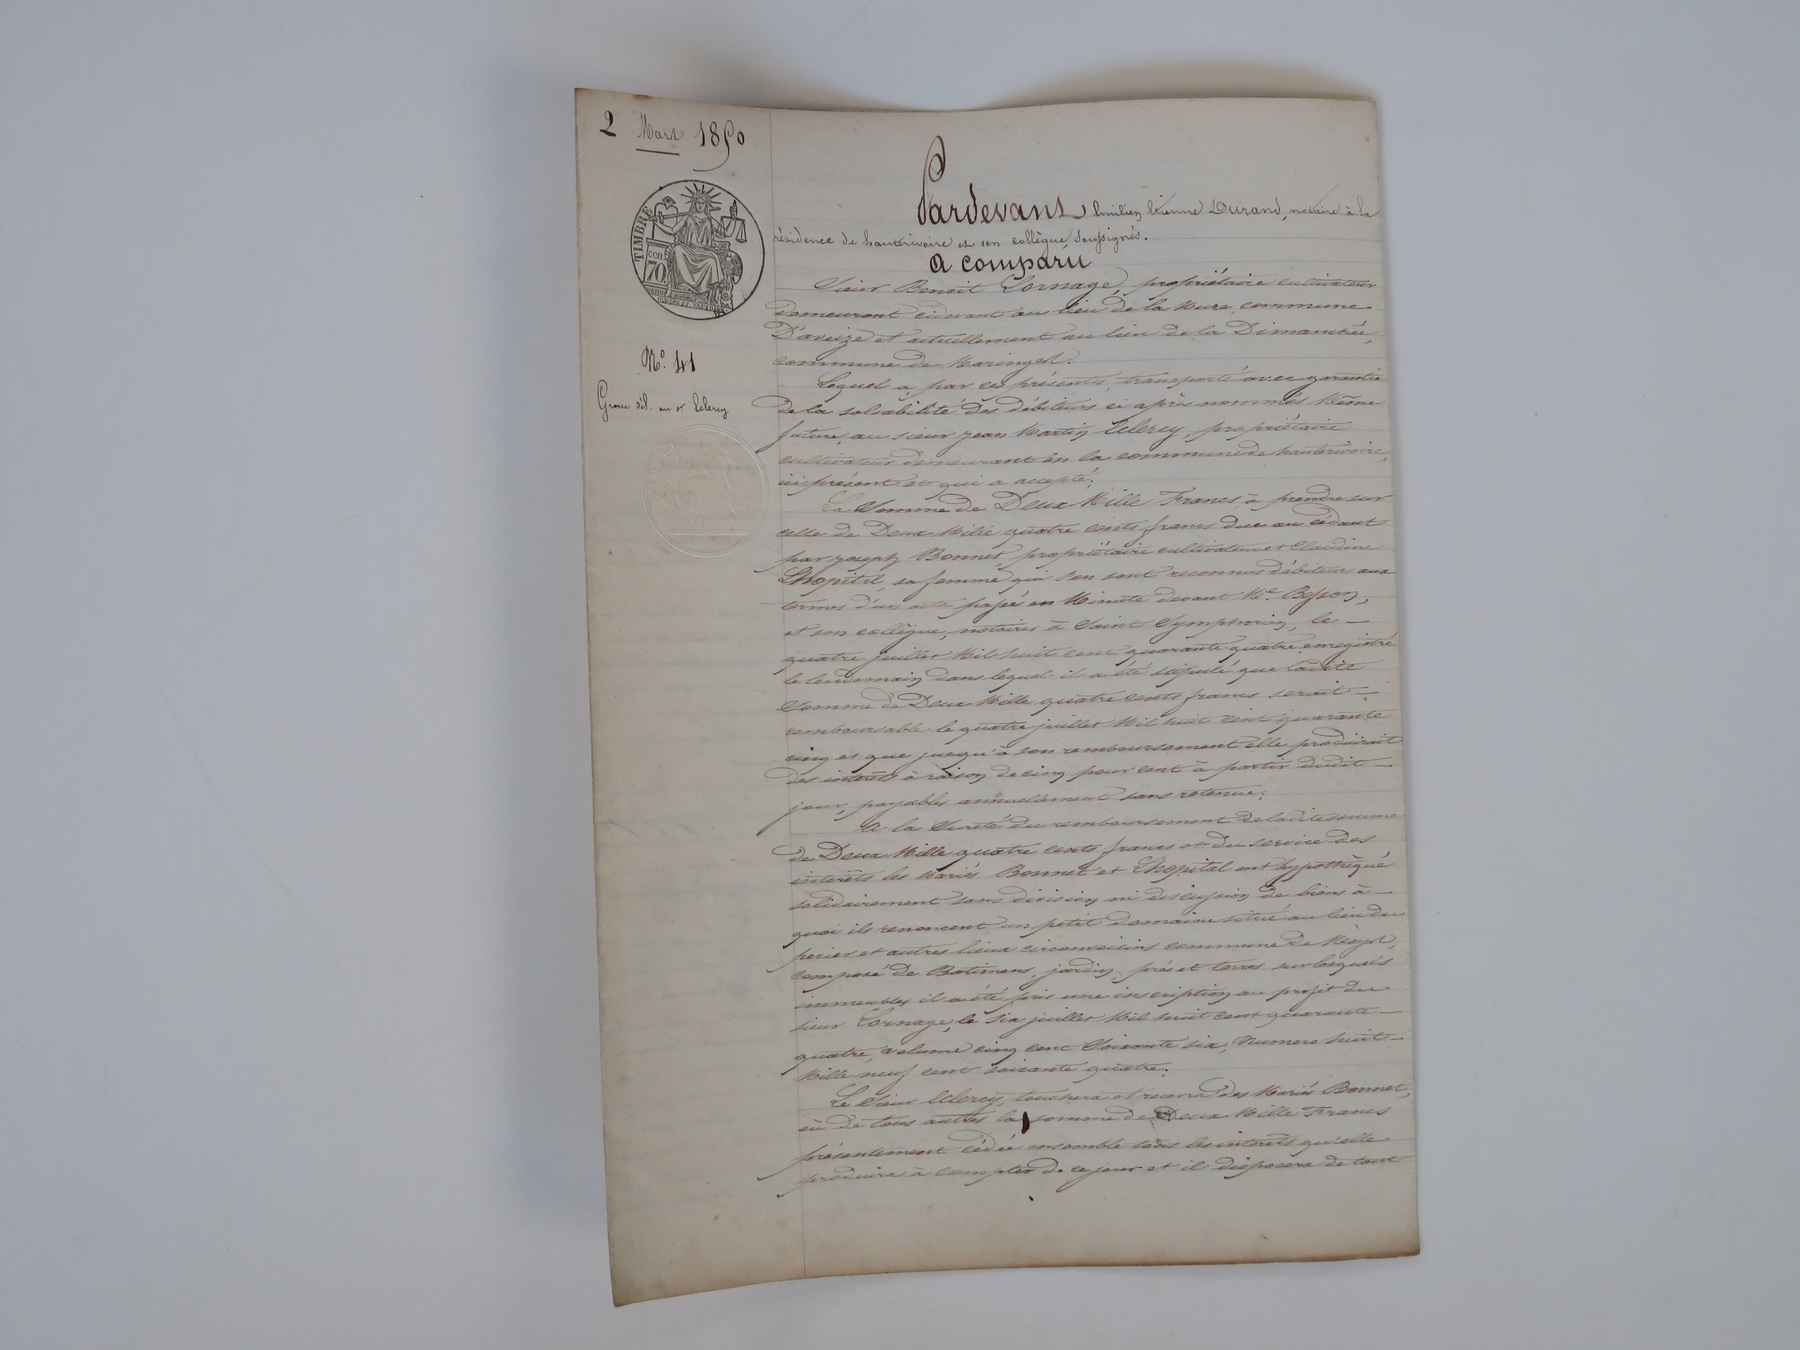 2 Mars 1850
TIMBRE
70
N.° 41
Grosse dél. au s.r Leclercq
Pardevant Emilien Etienne Durand, notaire à la
résidence de hauterivoire et son collègue, soussignés.
A comparu
Sieur Benoit Lornage, propriétaire cultivateur
demeurant cidevant au lieu de la Mure, commune
D'aveize et actuellement au lieu de la Dimanchée,
commune de Maringes.
Lequel a par ces présentes transporté avec garantie
de la solvabilité des débiteurs ci après nommés Même
future, au sieur jean Martin Leclercq, propriétaire
cultivateur demeurant en la commune de hauterivoire,
ici présent et qui a accepté;
La Somme de Deux Mille Francs à prendre sur
celle de Deux Mille quatre cents francs due au cédant
par joseph Bonnet, propriétaire cultivateur et Claudine
Lhopital, sa femme qui s'en sont reconnus débiteurs aux
termes d'un acte passé en Minute devant M.e Besson,
et son collègue, notaires à Saint Symphorien, le —
quatre juillet Mil huit cent quarante quatre, enregistré
le lendemain dans lequel il a été stipulé que ladite
Somme de Deux Mille quatre cents francs serait —
remboursable le quatre juillet Mil huit cent quarante
cinq et que jusqu'à son remboursement elle produirait
des intérêts à raison de cinq pour cent à partir dudit —
jour, payables annuellement sans retenue;
A la Sureté du remboursement de ladite somme
de Deux Mille quatre cents francs et du service des
intérêts les Mariés Bonnet et Lhopital ont hypothéqué
solidairement sans division ni discussion de biens à —
quoi ils renoncent, un petit domaine situé au lieu du
perier et autres lieux circonvoisins commune de
composé de Batimens, jardin, prés et terres sur lesquels
immeubles il a été pris une inscription au profit du
sieur Lornage, le Six juillet Mil huit cent quarante —
quatre, volume cinq cent Soixante six, Numero huit —
Mille neuf cent soixante quatre;
Le Sieur Leclercq, touchera et recevra des Mariés Bonnet,
ou de tous autres la somme de Deux Mille Francs
présentement cédée ensemble tous les intérêts qu'elle
produira à compter de ce jour et il disposera de tout